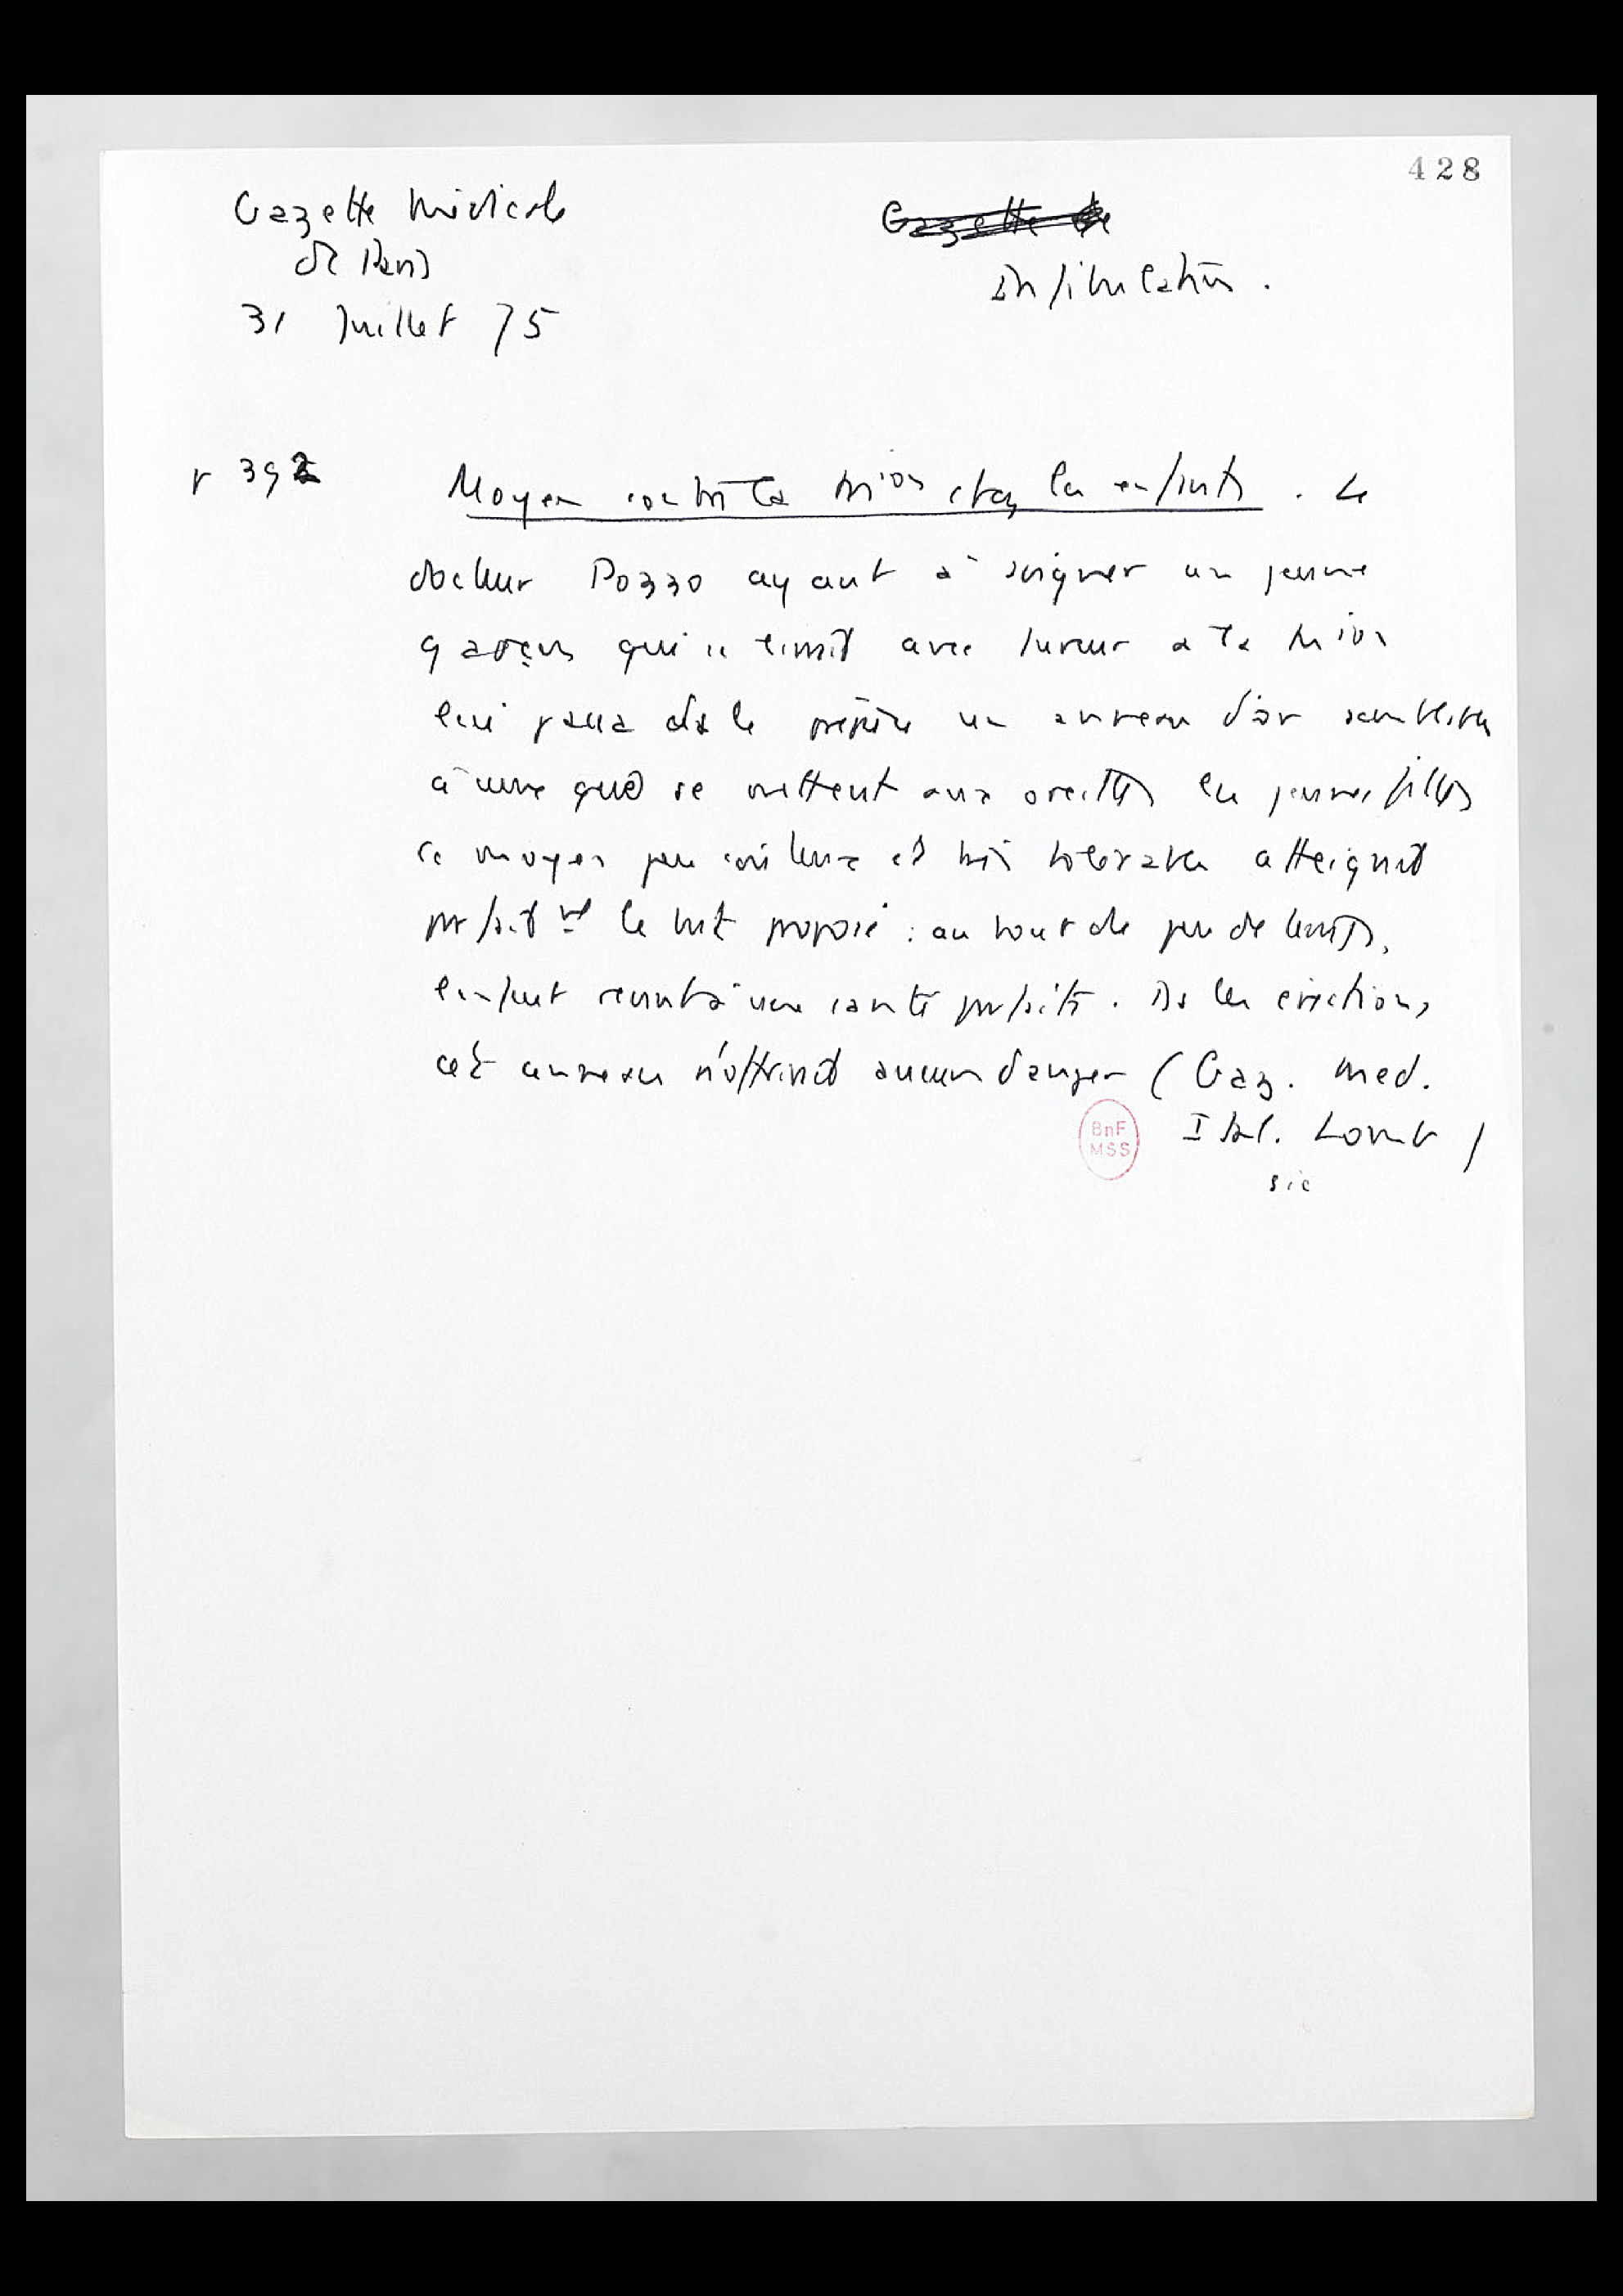 428
Gazette Médicale
de Paris
31 Juillet 75
Gazette de
Infibulation.
p 392
Moyen contre la chez les enfants. Le
docteur Pozzo ayant à soigner un jeune
garçon qui se livrait avec fureur à la
lui passa ds le prépuce un anneau d'or semblable
à ceux que se mettent aux oreilles les jeunes filles
ce moyen peu coûteux et très tolerable atteignit
parfait mt le but proposé : au bout de peu de temps,
l'enfant revint à une santé parfaite. Ds les érections,
cet anneau n'offrirait aucun danger (Gaz. Med.
BnF
MSS
Ital. Lomb)
sic